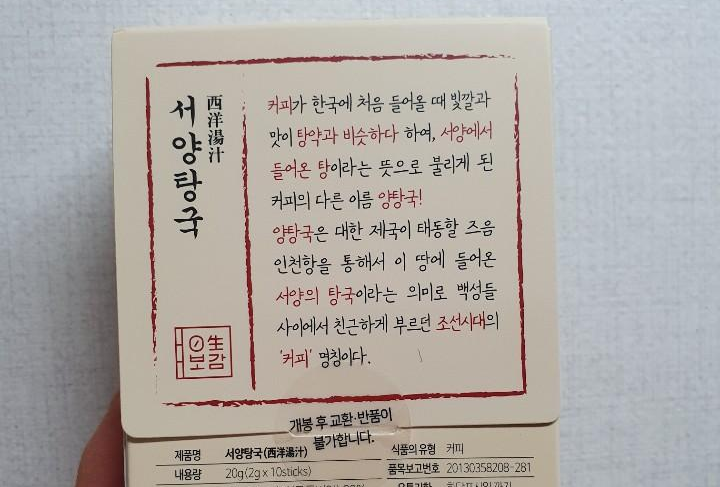 西洋湯汁
서양탕국
커피가 한국에 처음 들어올 때 빛깔과
맛이 탕약과 비슷하다 하여, 서양에서
들어온 탕이라는 뜻으로 불리게 된
커피의 다른 이름 양탕국!
양탕국은 대한 제국이 태동할 즈음
인천항을 통해서 이 땅에 들어온
서양의 탕국이라는 의미로 백성들
사이에서 친근하게 부르던 조선시대의
'커피' 명칭이다.
生
보감
개봉 후 교환·반품이
불가합니다.
제품명 서양탕국(西洋湯汁) 식품의 유형 커피
내용량 20g(2g x 10sticks) 품목보고번호 20130358208-281